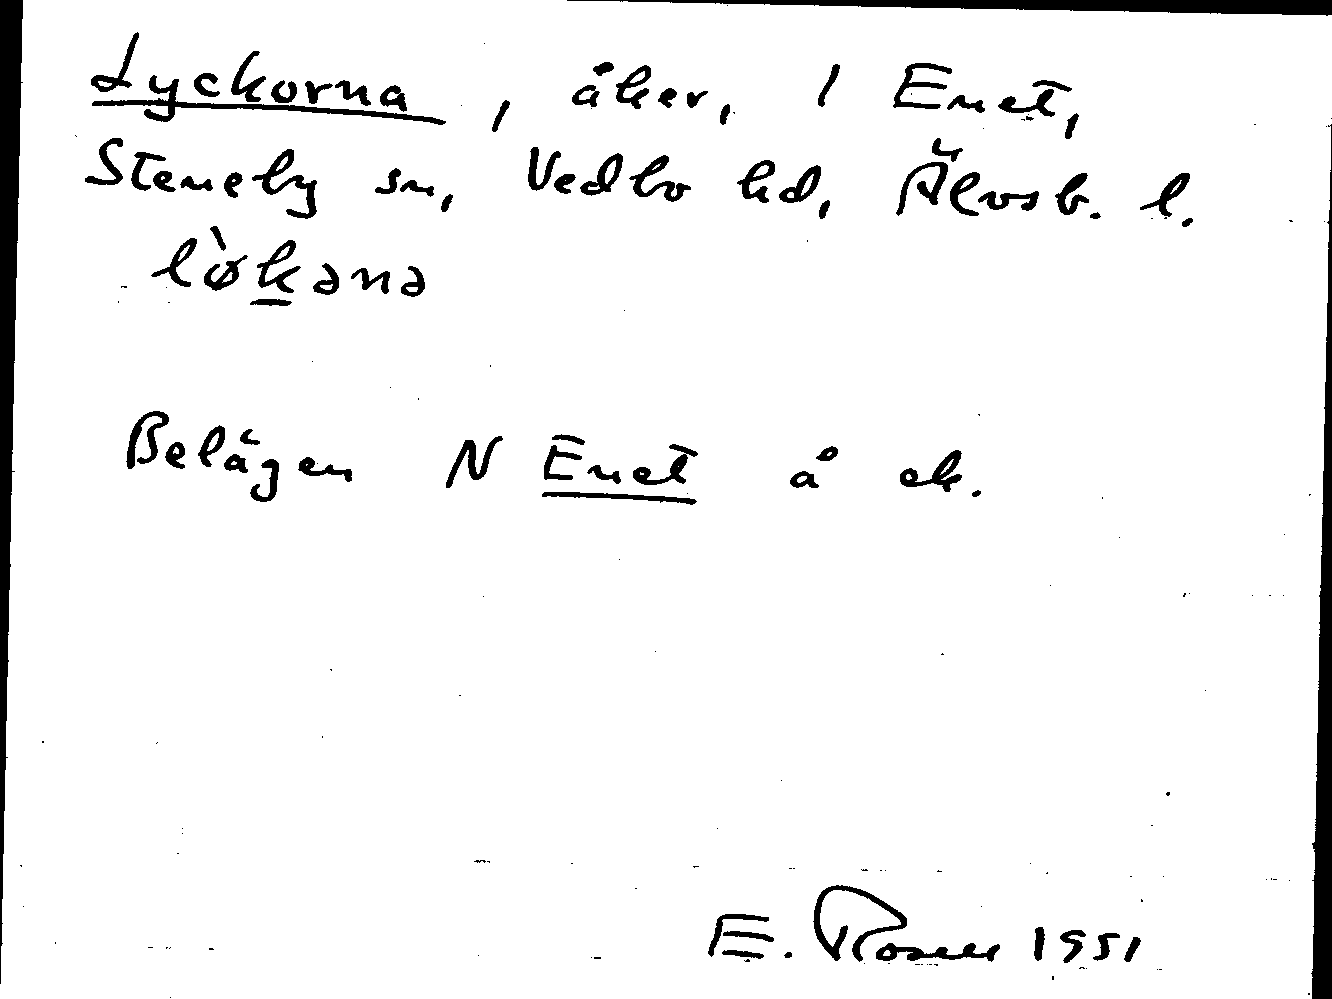 Lyckorna, åker, 1 Enet,
Steneby sn, Vedbo hd, Älvsb. l.
lø̀kənə
Belägen N Enet å ek.
E. Rosell 1951